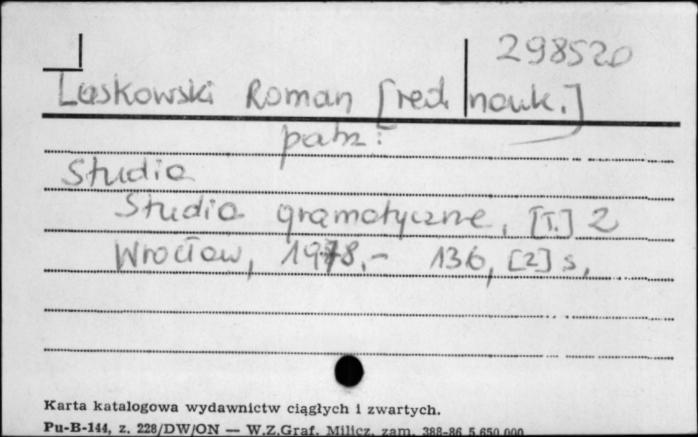 298520
Laskowski Roman [red. nauk.]
patrz:
Studia
Studia gramatyczne, [T.] 2
Wrocław, 1978.- 136, [2] s,
Karta katalogowa wydawnictw ciągłych i zwartych.
Pu-B-144, z. 228/DW/ON — W.Z.Graf. Milicz, zam. 388-86 5.650.000